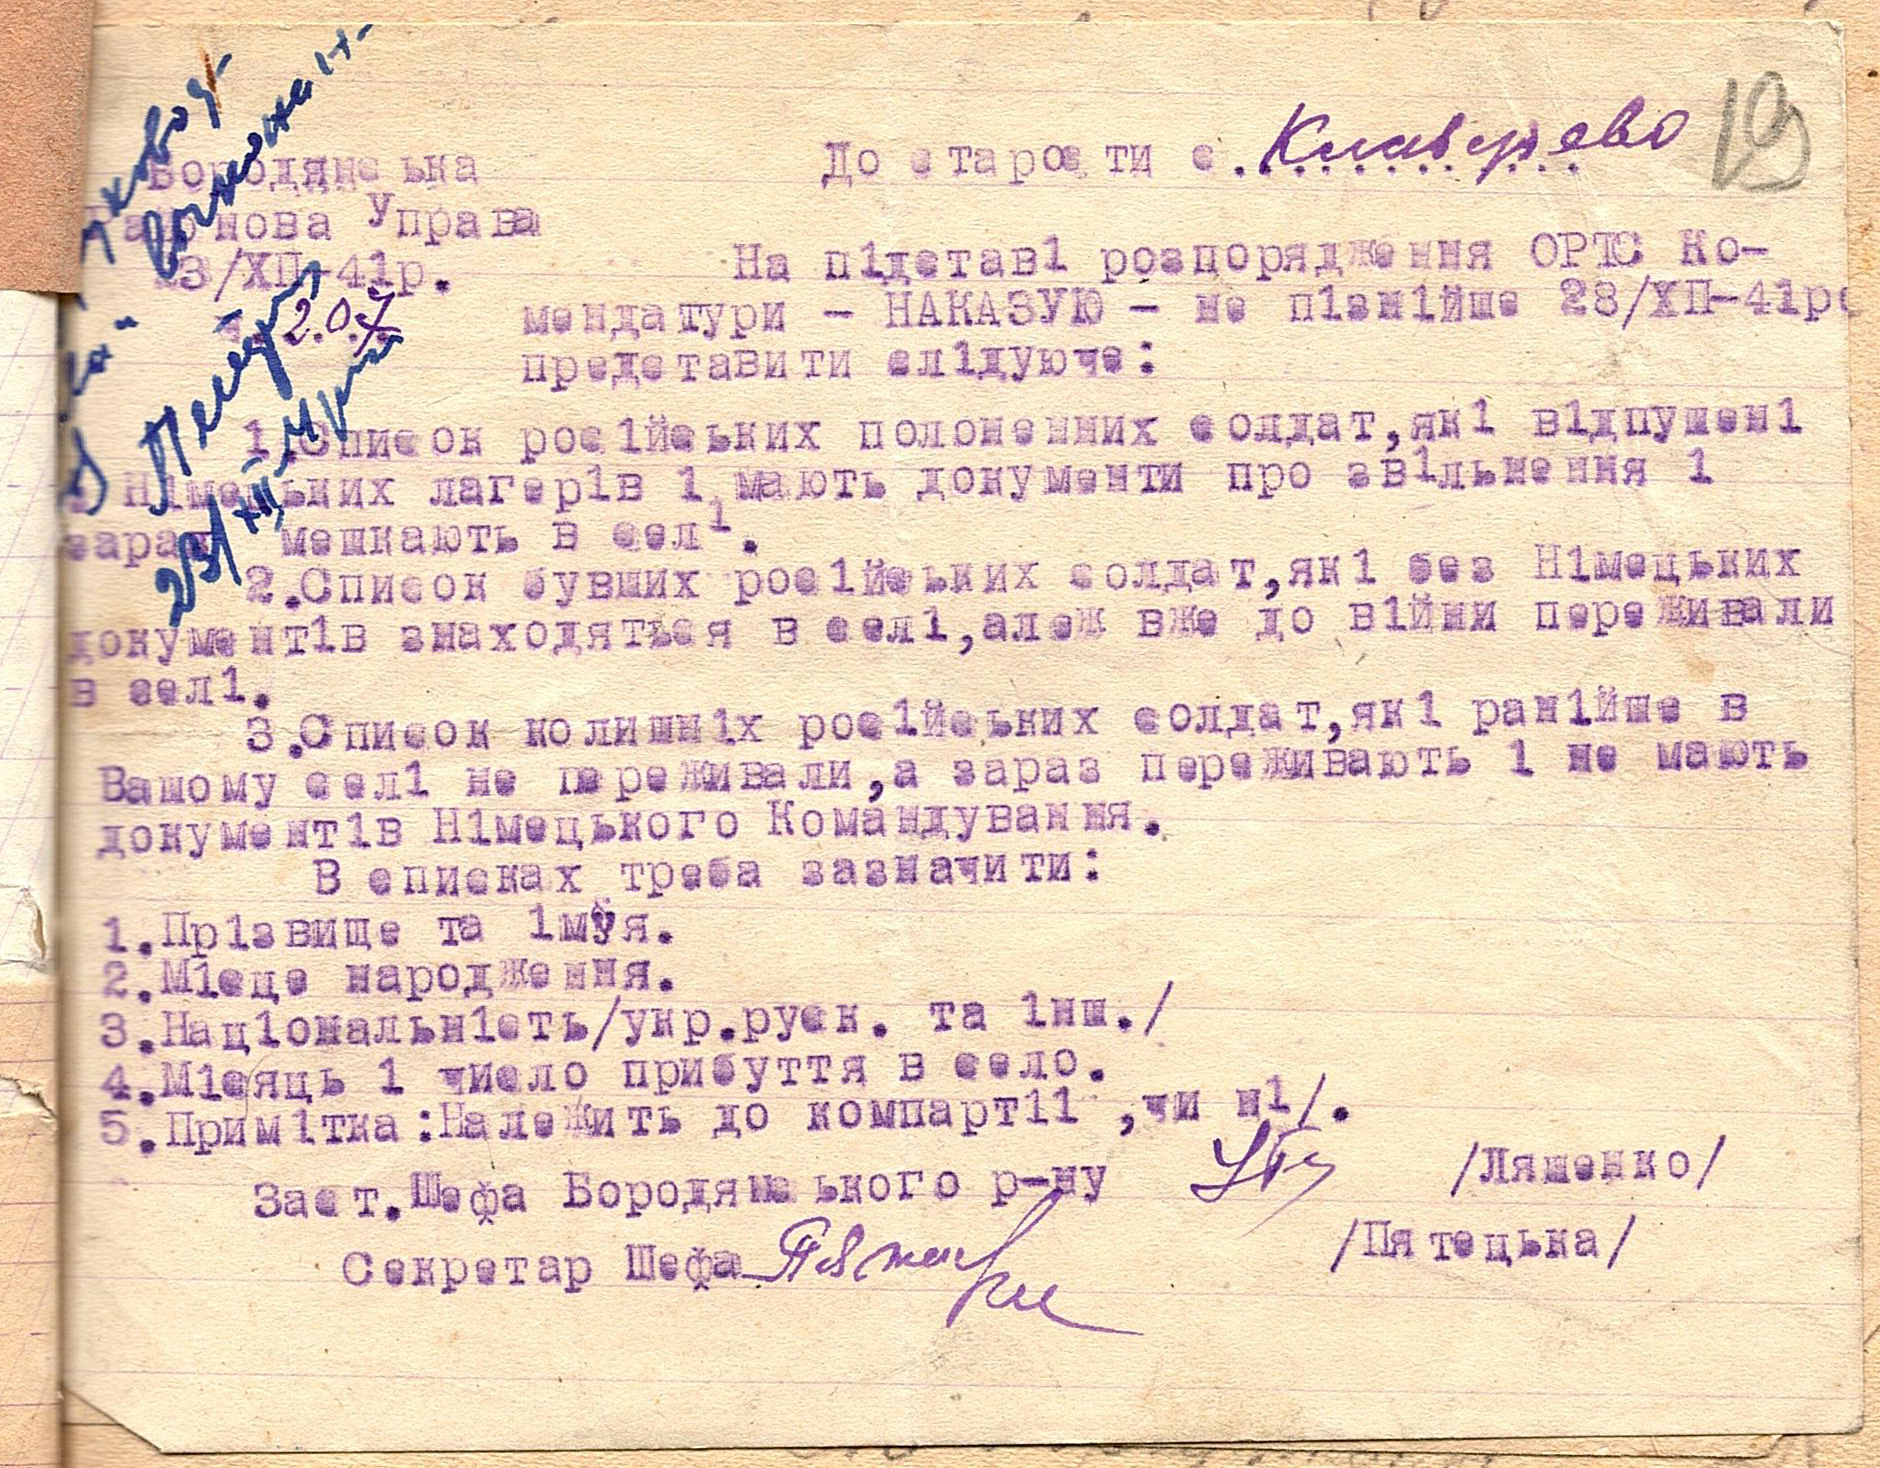 19
Бородянська До старости с. Клавдиєво
Районова Управа
3/ХП-41р. На підставі розпорядження ОРТС Ко-
ч. 207 мендатури - НАКАЗУЮ - не пізнійше 28/ХП-41ро
представити слідуюче:
1.Список російських полонених солдат,які відпущені
Німецьких лагерів і мають документи про звільнення і
зараз мешкають в селі.
23/ХІІ
2.Список бувших російських солдат,які без Німецьких
документів знаходяться в селі,алеж вже до війни переживали
в селі.
3.Список колишніх російських солдат,які ранійше в
Вашому селі не переживали,а зараз переживають і не мають
документів Німецького Командування.
В списках треба зазначити:
1.Прізвище та імуя.
2.Місце народження.
3.Національність/укр.руск. та інш./
4.Місяць і число прибуття в село.
5.Примітка:Належить до компартії ,чи ні/.
Заст.Шефа Бородянського р-ну /Ляшенко/
Секретар Шефа /Пятецька/